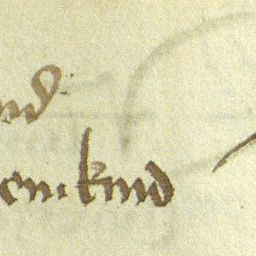 nd
em kind